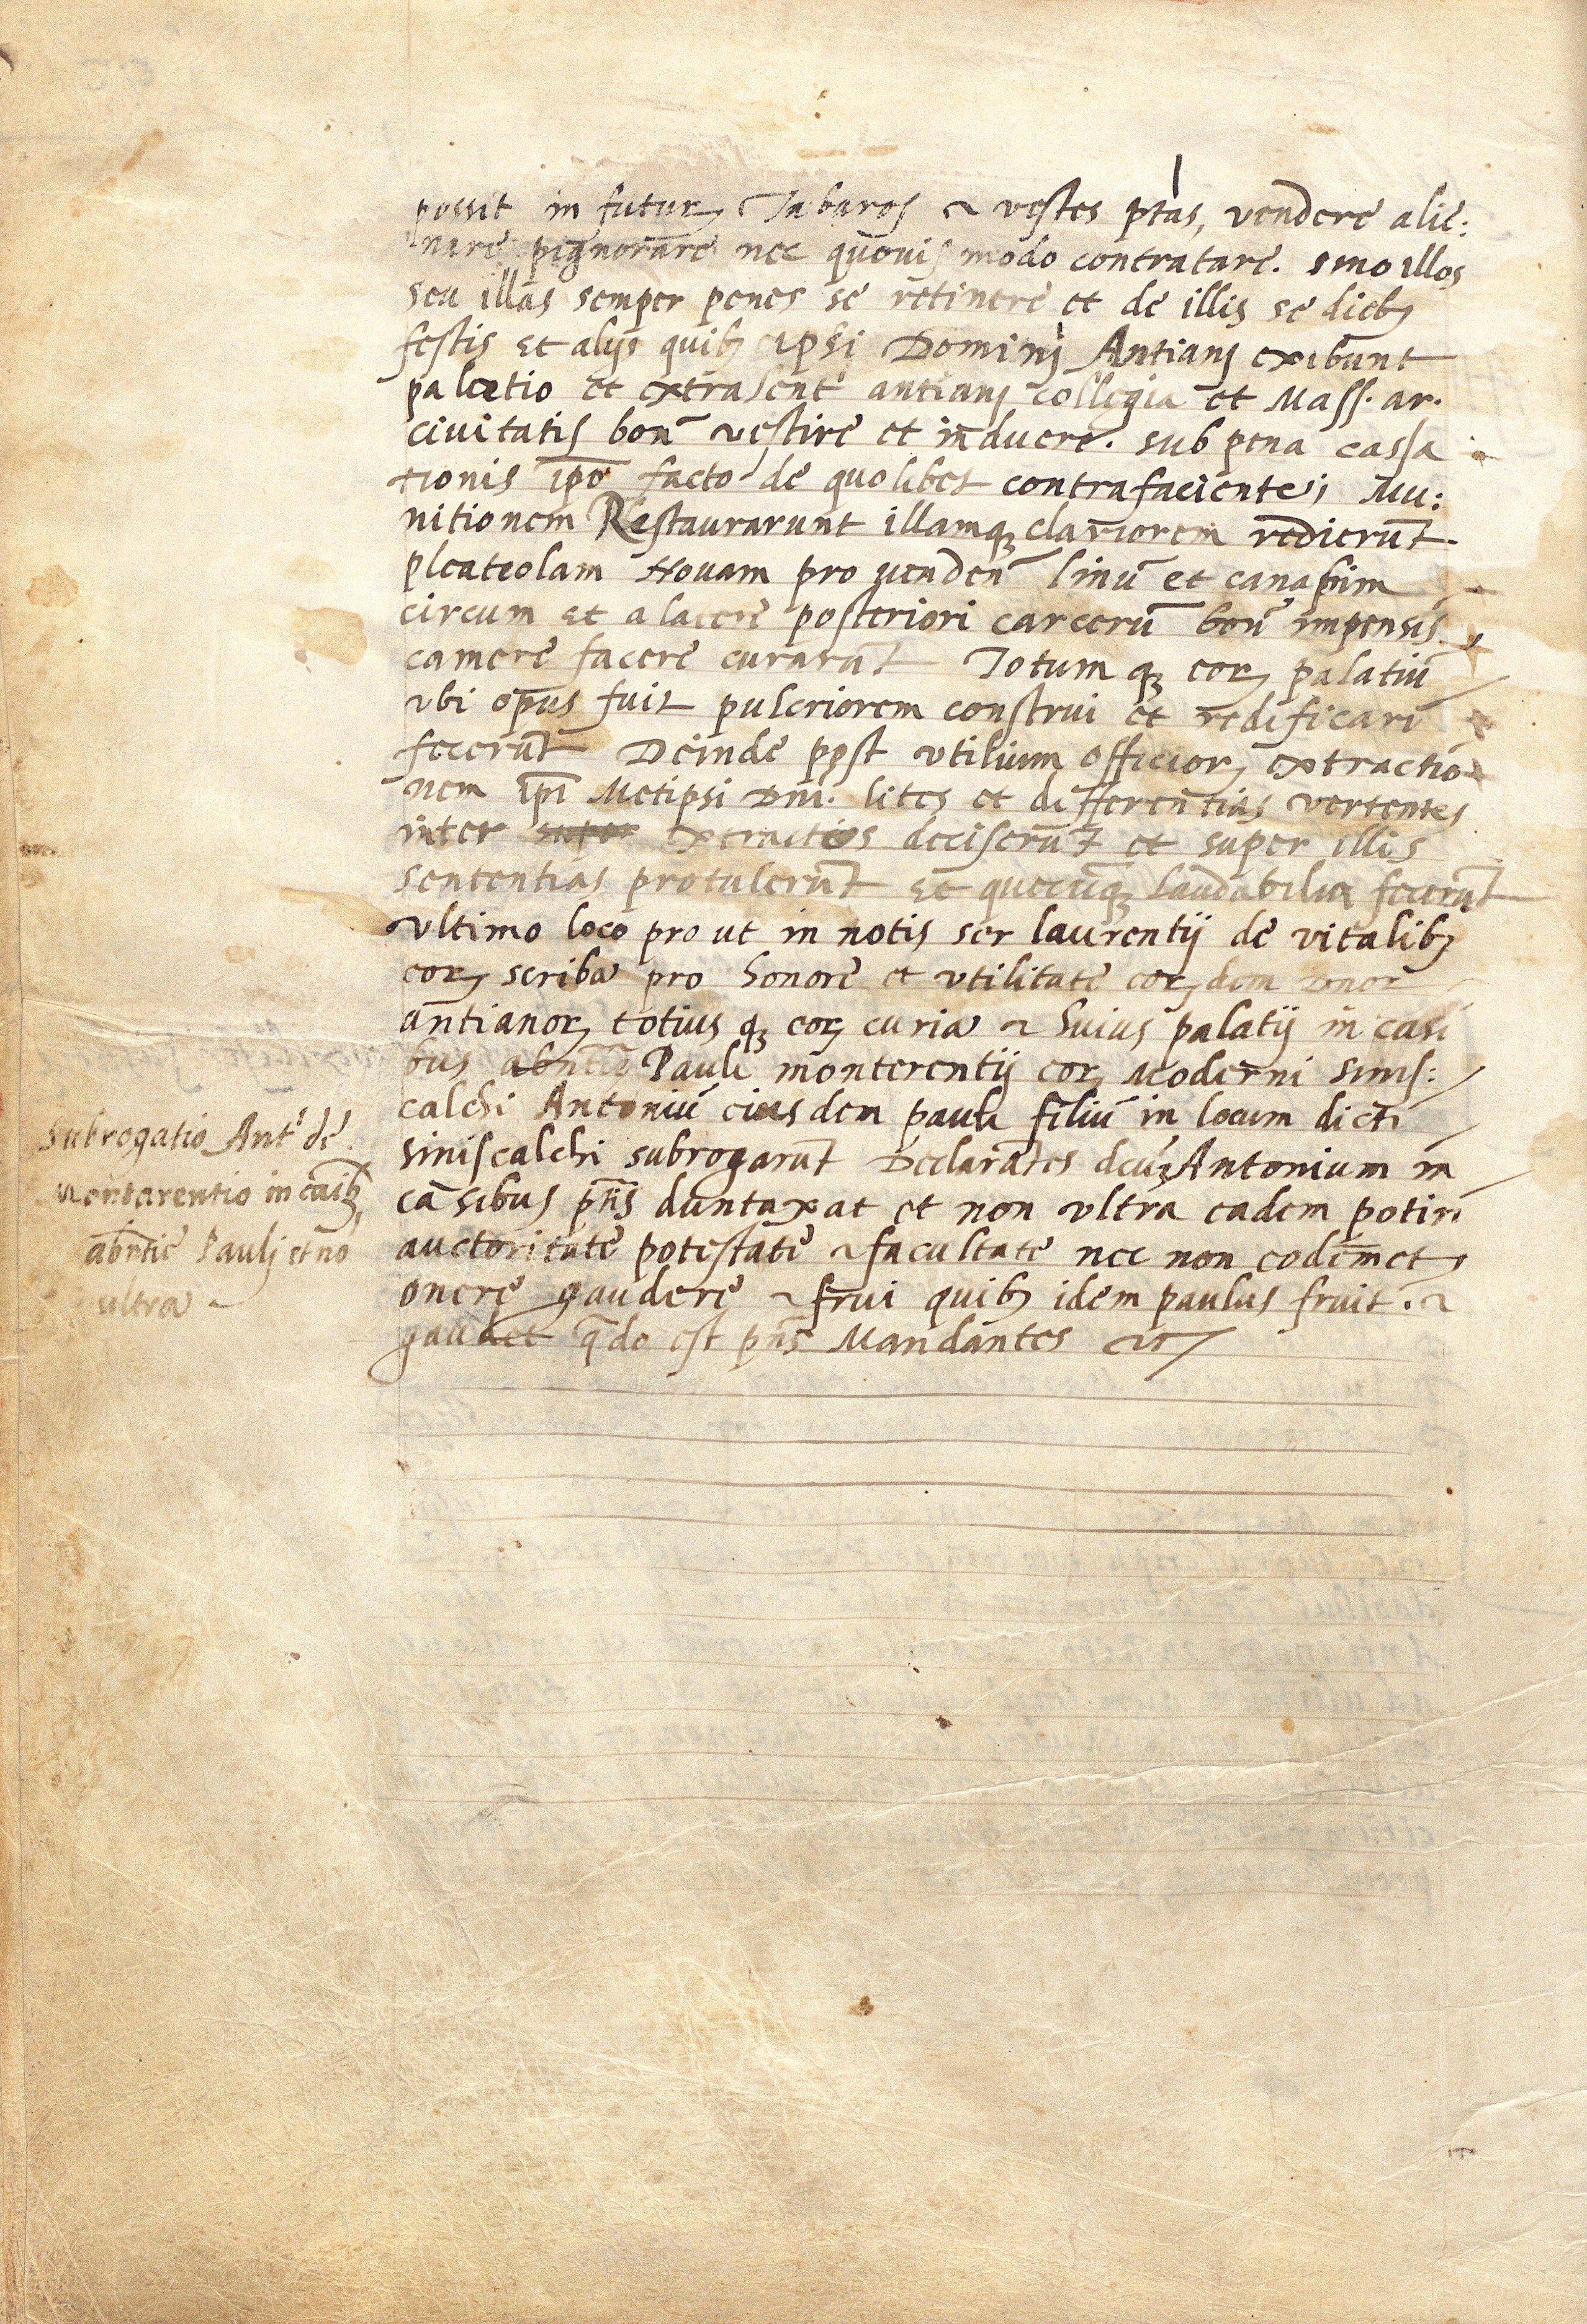 possit in futurꝝ Tabaros & vestes p̄tas, vendere alie:
nare pignorare nec quouis modo contratare. smo illos
seu illas semper penes se retinere et de illis se diebꝫ
festis et alijs quibꝫ ipsi Dominj Antianj exibunt
palatio et extrasent antianj collegia et Mass. ar.
ciuitatis bon̄ vestire et induere. sub pena cassa
tionis ip̄o facto de quolibet contrafaciente; Mu:
nitionem Restaurarunt illamqꝫ clariorem redierūt.
pleateolam Nouam pro venden̄ linū et canapim
circum et a latere posteriori carcerū bon̄ impensis
camere facere curarūt Totumqꝫ eorꝝ palatiū
vbi opus fuit pulcriorem construi et redificari
fecerūt Deinde post vtilium officiorꝝ extractio
nem ip̄i Metipsi Dn̄i. lites et differentias vertentes
inter super extractos deciserūt et super illis
sententias protulerūt et quecūqꝫ laudabilia fecerūt
vltimo loco pro ut in notis ser laurentij de vitalibꝫ
eorꝝ scriba pro honore et vtilitate eorꝝdem
antianorꝝ totiusqꝫ eorꝝ curia & huius palatij in casi
bus abn̄tie Pauli monterentij eorꝝ Moderni sinis:
calchi Antoniū eiusdem pauli filiū in locum dicti
siniscalchi subrogarūt Declarātes Antonium in
casibus p̄tis duntaxat et non vltra eadem potiri
auctoritate potestate & facultate nec non eodemet
onere gaudere & frui quibꝫ idem paulus fruit. &
gaudet q̄do est pn̄s Mandantes
subrogatio Ant.ⁱ de
Montarentio in cāibꝫ
abn̄tie Paulj et nō
ultra